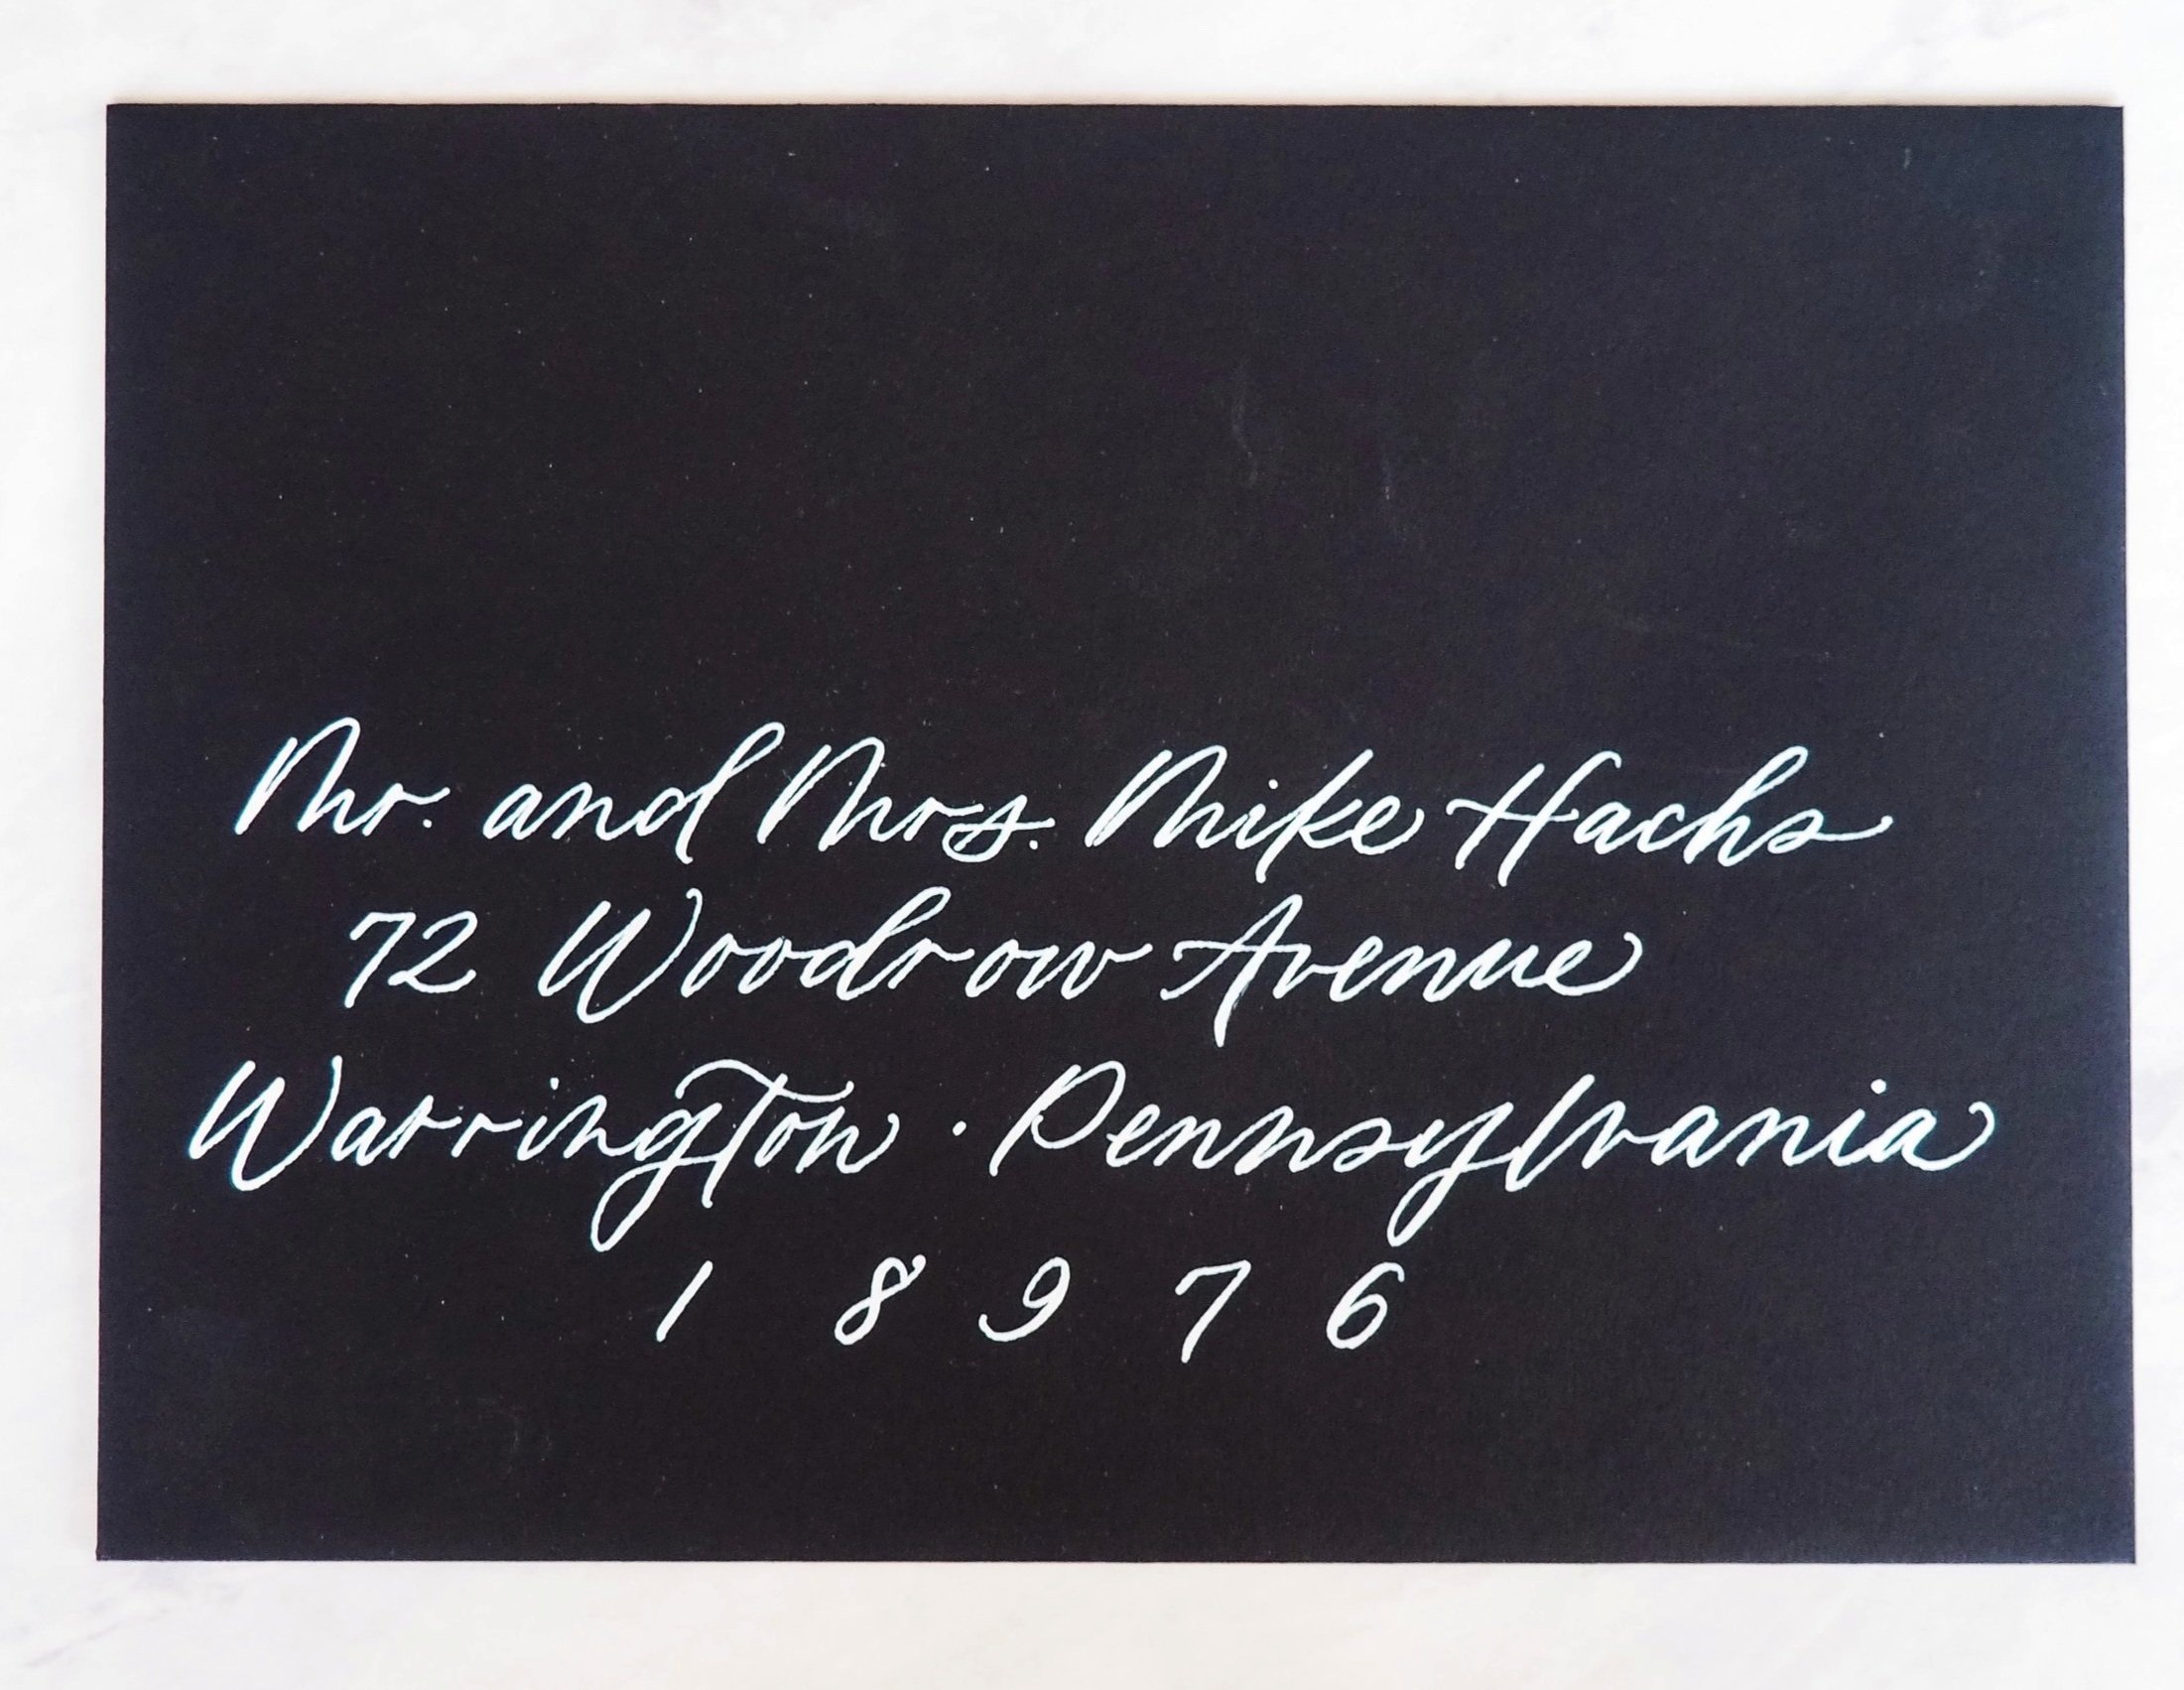 Mr. and Mrs. Mike Hachs
72 Woodrow Avenue
Warrington · Pennsylvania
1 8 9 7 6